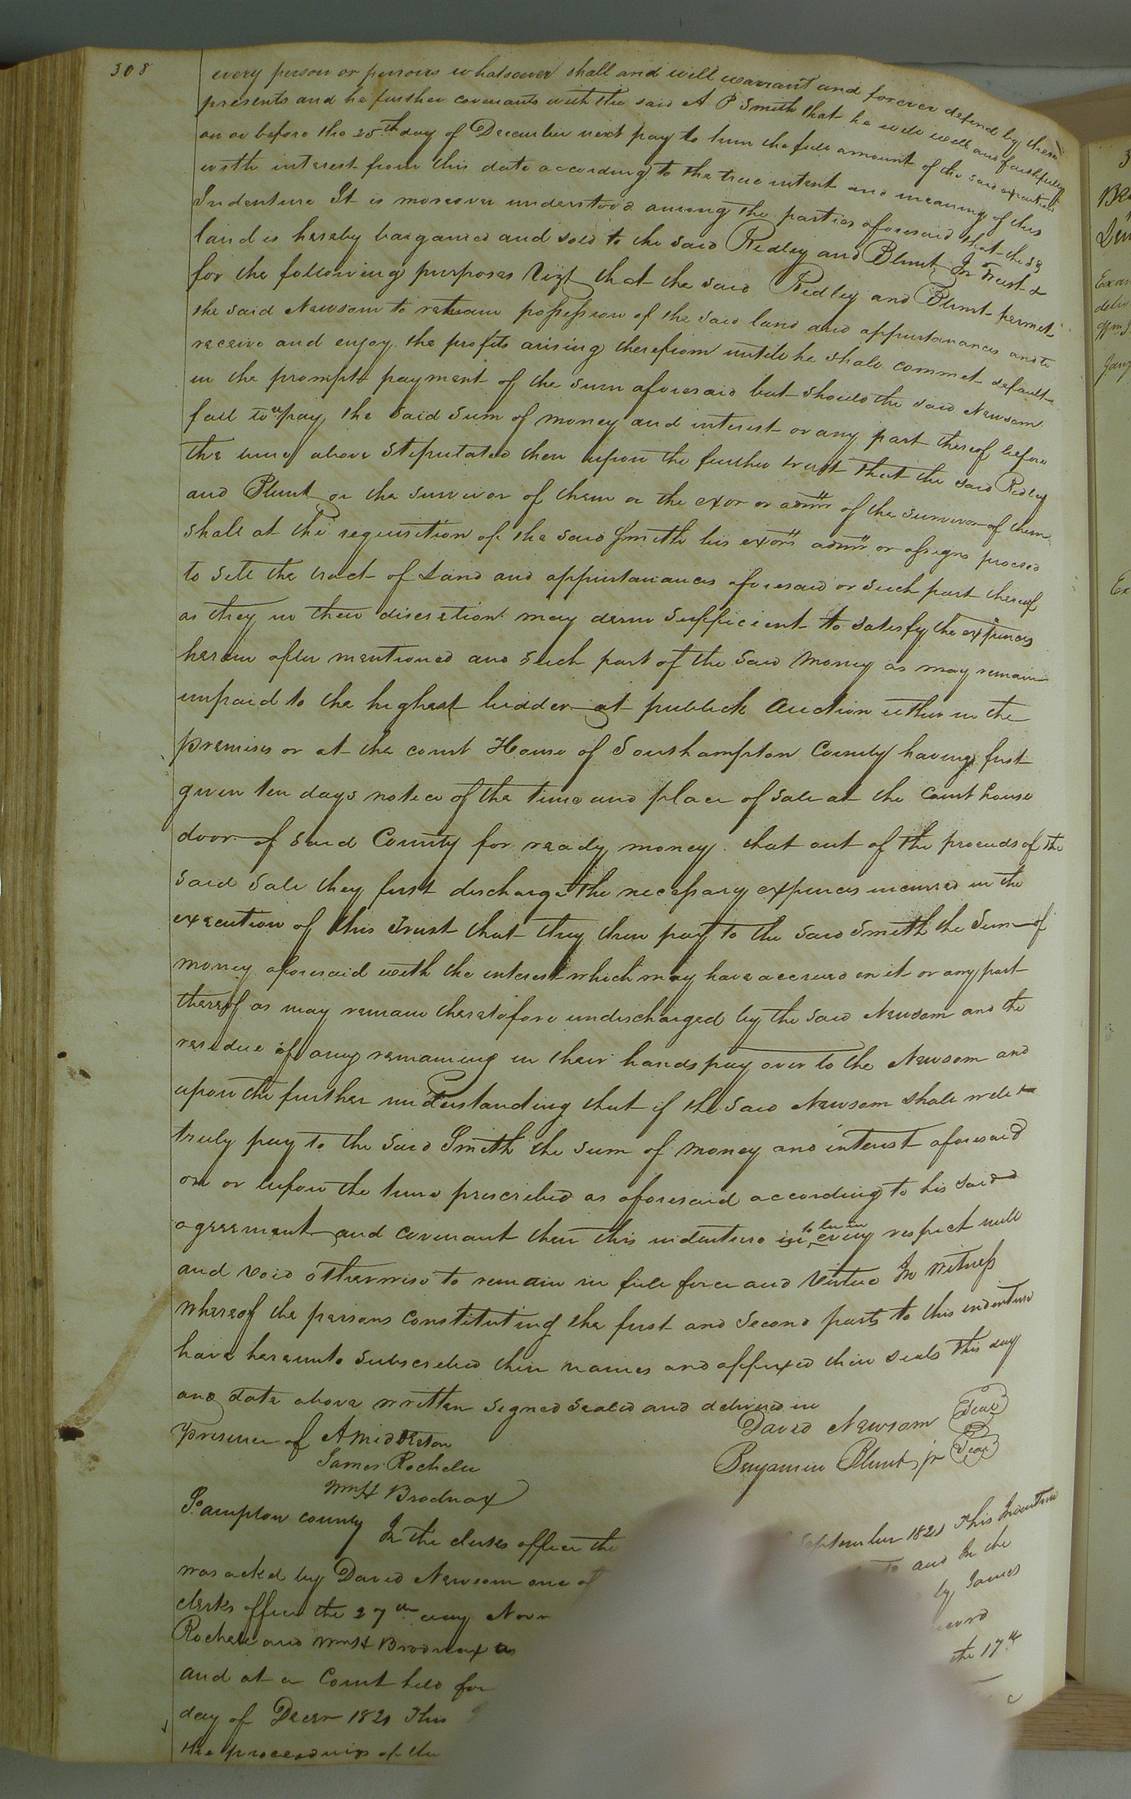 308
every person or persons whatsoever shall and will warrant and forever defend by these
presents and he further covenants with the said A P Smith that he will well and faithfully
on or before the 25th day of December next pay to him the full amount of the said
with interest from this date according to the true intent and meaning of this
Indenture It is moreover understood among the parties aforesaid that the sd
land is hereby bargained and sold to the said Ridley and Blunt In Trust &
for the following purposes Vizt that the said Ridley and Blunt permit
the said Newsom to retain possession of the said land and appurtanances and to
receive and enjoy the profits arising therefrom untill he shall commet default
in the prompt payment of the sum aforesaid but should the said Newsom
fail to pay the said sum of money and interest or any part thereof before
the time above stipulated then upon the further trust that the said Ridley
and Blunt or the survivor of them or the exor or admr of the survivor of them
shall at the requisition of the said Smith his exors admrs or assigns proceed
to sell the tract of Land and appurtanances aforesaid or such part thereof
as they in their discretion may deem sufficient to satisfy the expences
herein after mentioned and such part of the said money as may remain
unpaid to the highest bidder at publick Auction either in the
premises or at the court House of Southampton County having first
given ten days notice of the time and place of sale at the Court house
door of said County for ready money that out of the proceeds of the
said sale they first discharge the necessary expences incurred in the
execution of this Trust that they then pay to the said Smith the sum of
money aforesaid with the interest which may have accrued on it or any part
thereof as may remain theretofore undischarged by the said Newsom and the
residue if any remaining in their hands pay over to the Newsom and
upon the further understanding that if the said Newsom shall well &
truly pay to the said Smith the sum of money and interest aforesaid
on or before the time prescribed as aforesaid according to his said
agreement and covenant then this indenture to be in every respect null
and void otherwise to remain in full force and Virtue In Witness
whereof the persons constituting the first and second parts to this indenture
have hereunto subscribed their names and affixed their seals this day
and date above written Signed sealed and delivered in
presence of A Middleton David Newsom Seal
James Rochelle Benjamin Blunt jr Seal
Wm H Brodnax
So.ampton county In the clerks office the September 1821 This Indenture
was ackd by David Newsom one of and In the
clerks office the 27th day Novr by James
Rochelle and Wm H Brodnax record
and at a Court held for the 17th
day of Decer 1821 This
the proceedings of the